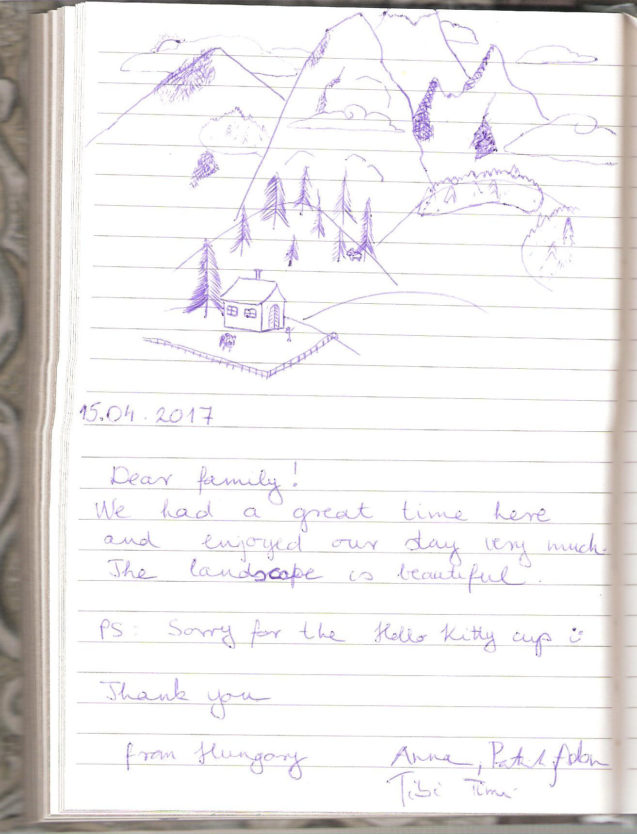 15.04.2017
Dear family!
We had a great time here
and enjoyed our stay very much.
The landscape is beautiful.
PS: Sorry for the Hello Kitty cup
Thank you
from Hungary
Anna,
Tibi Timi